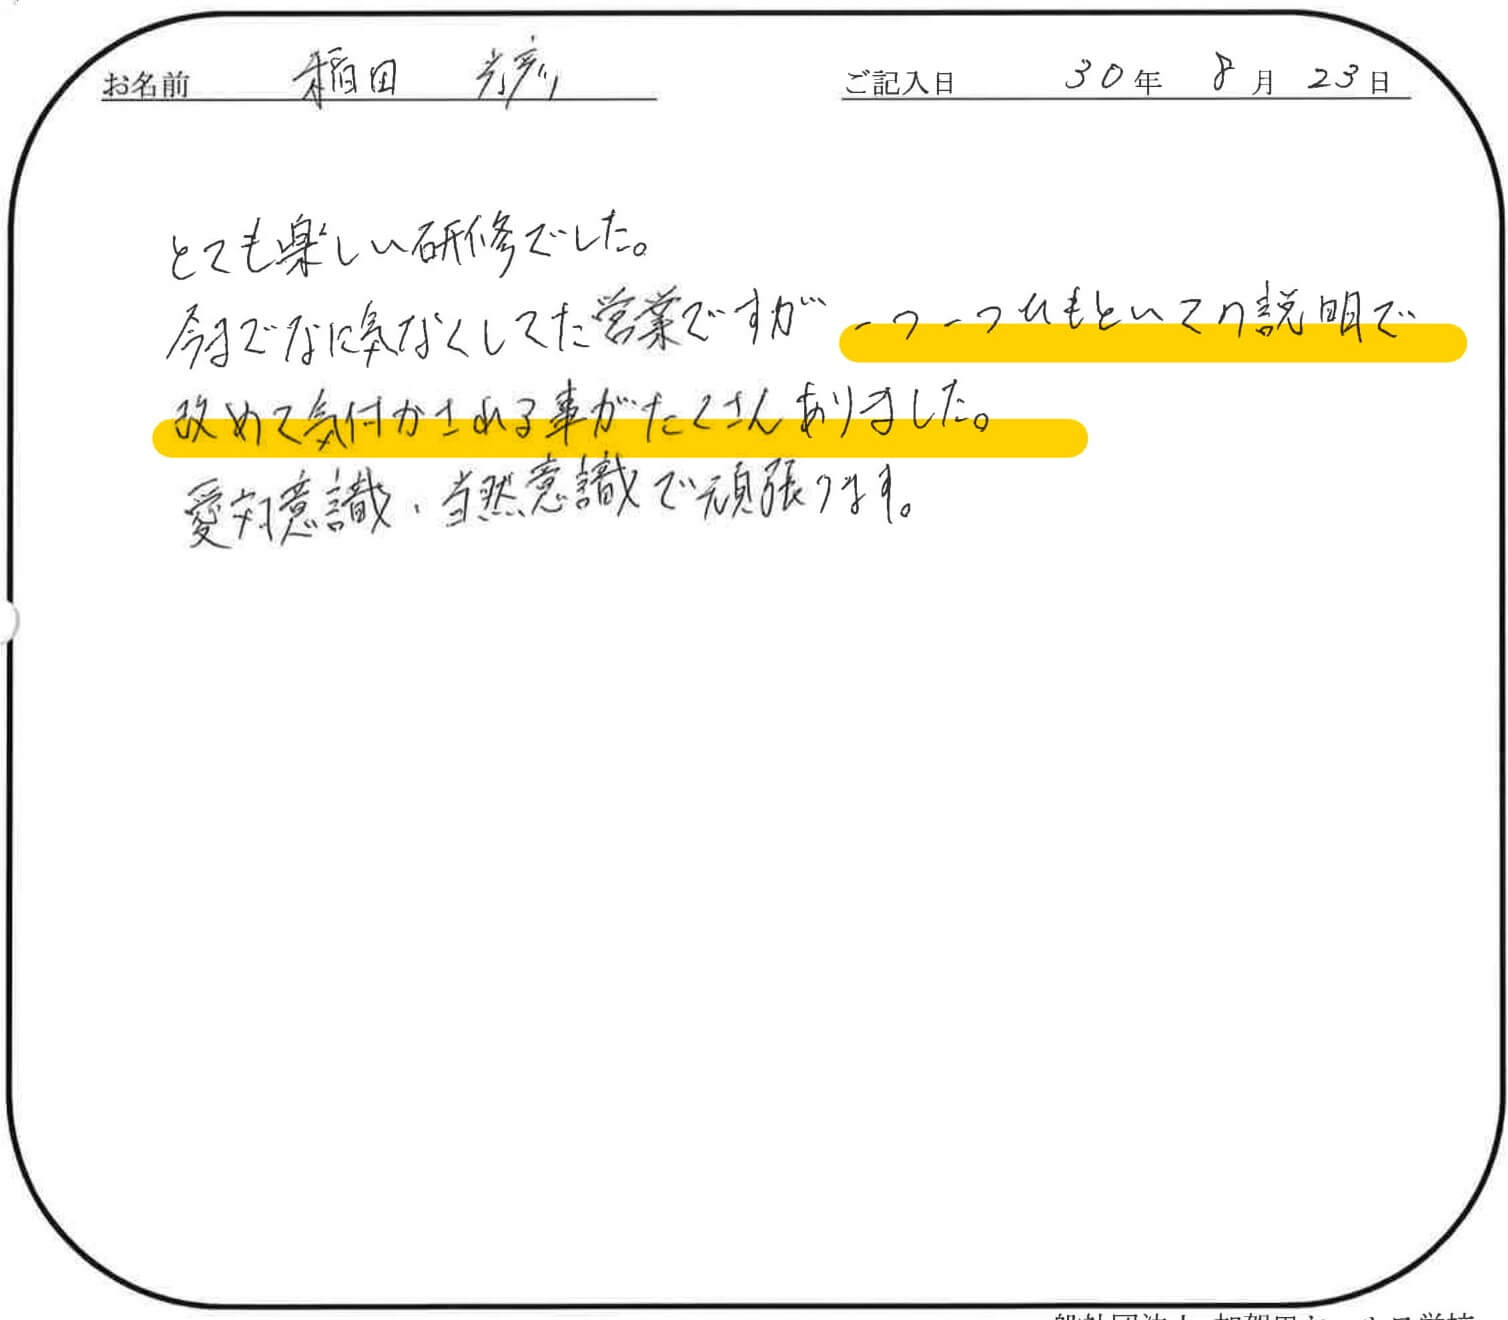 お名前 稲田 光彦 ご記入日 30年 8月 23日
とても楽しい研修でした。
今までなに気なくしてた営業ですが 一つ一つひもといての説明で
改めて気付かされる事がたくさんありました。
愛対意識・当然意識で頑張ります。